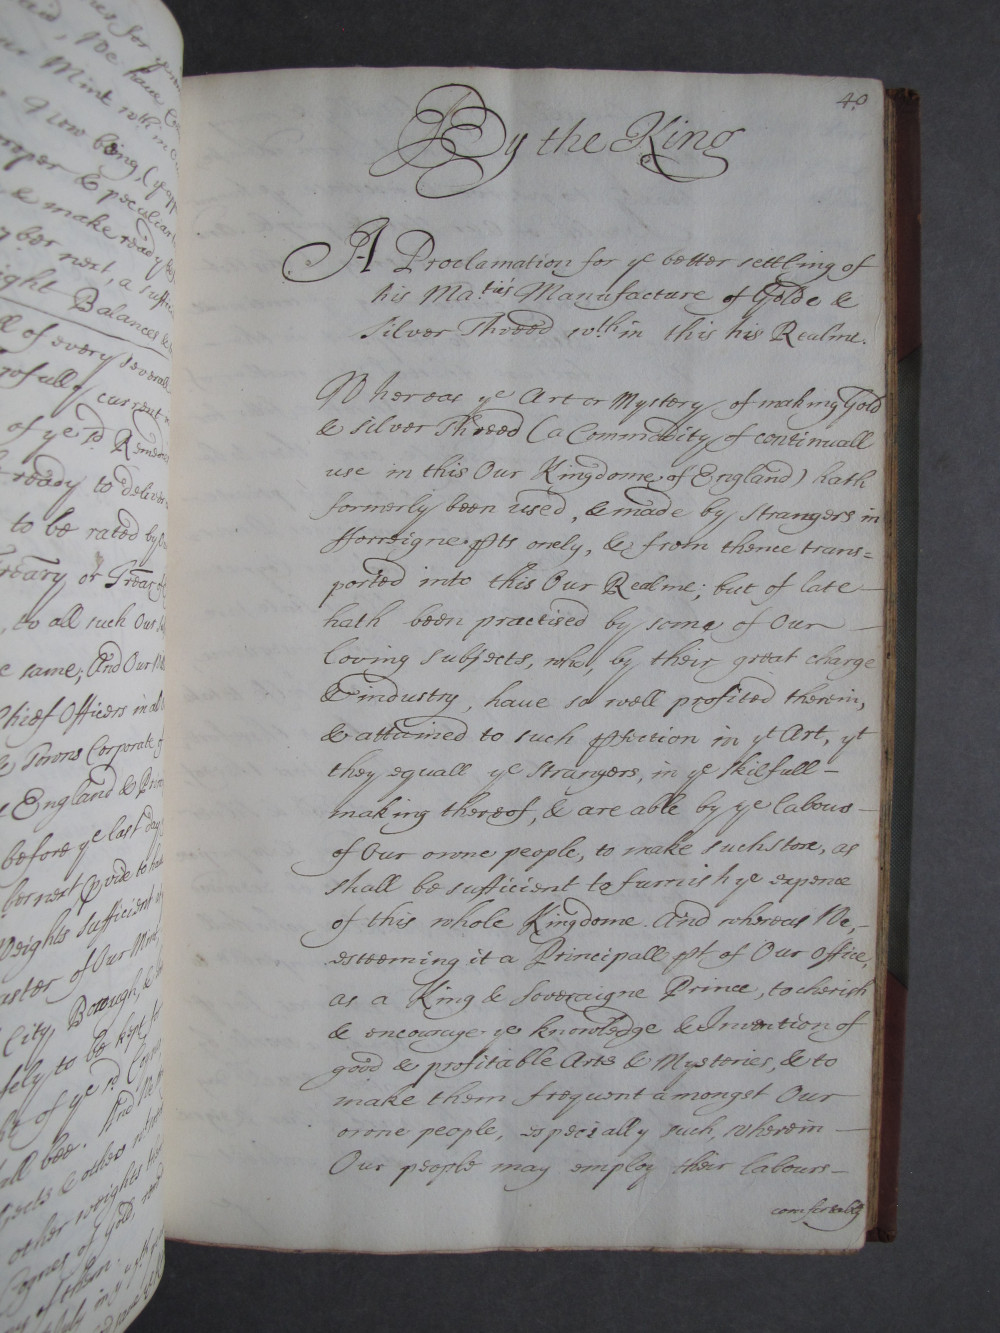 ies for ye
said, We have
our Mint wth in
now being, (if
proper & peculiar
& make ready
ber next, a suffici
ight Balances &
ll of every severall
of all currant
of ye sd. Remed
ready to deliver
to be rated by
Treãry or Treas
, to all such Our
e same; And Our
Chief Officers in al
& Towns Corporate
England &
before ye last day
ber next pvide to
Weights sufficient
aster of Our Mint,
City, Borough, &
fely to be kept to
of ye sd
all bee. And
& other
other weights
Coynes of Gold
of them.
40
By the King
A Proclamation for ye better settling of
his Ma.ties Manufacture of Golde &
Silver Threed wth.in this his Realme.
Whereas ye Art or Mystery of making Gold
& Silver Threed (a Commodity of continuall
use in this Our Kingdome of England) hath
formerly been used, & made by Strangers in
fforreigne pts onely, & from thence trans=
ported into this Our Realme; but of late
hath been practised by some of Our
Loving Subjects, who, by their great charge
& industry, have so well profited therein,
& attained to such pfection in yt Art, yt
they equall ye Strangers, in ye Skilfull
making thereof, & are able by ye labour
of Our owne people, to make such store, as
shall be sufficient to furnish ye expence
of this whole Kingdome. And whereas We,
esteeming it a Principall pt of Our Office,
as a King & Soveraigne Prince, to cherish
& encourage ye knowledge & Invention of
good & profitable Arts & Mysteries, & to
make them frequent amongst Our
owne people, especially such, wherein
Our people may employ their labours
comfortably